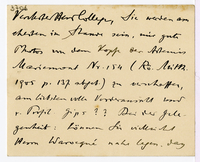 Verehrter Herr College, Sie werden am
ehesten im Stande sein, mir gute
Photos von dem Kopf der Artemis
Mariemont Nr. 154 (Röm. Mitth.
1905 p. 137 abgeb.) zu verschaffen,
am liebsten volle Vorderansicht und
Profil Gips?? Bei der Gele-
genheit: Können Sie vielleicht
Herrn Warocqué nahe legen, dass